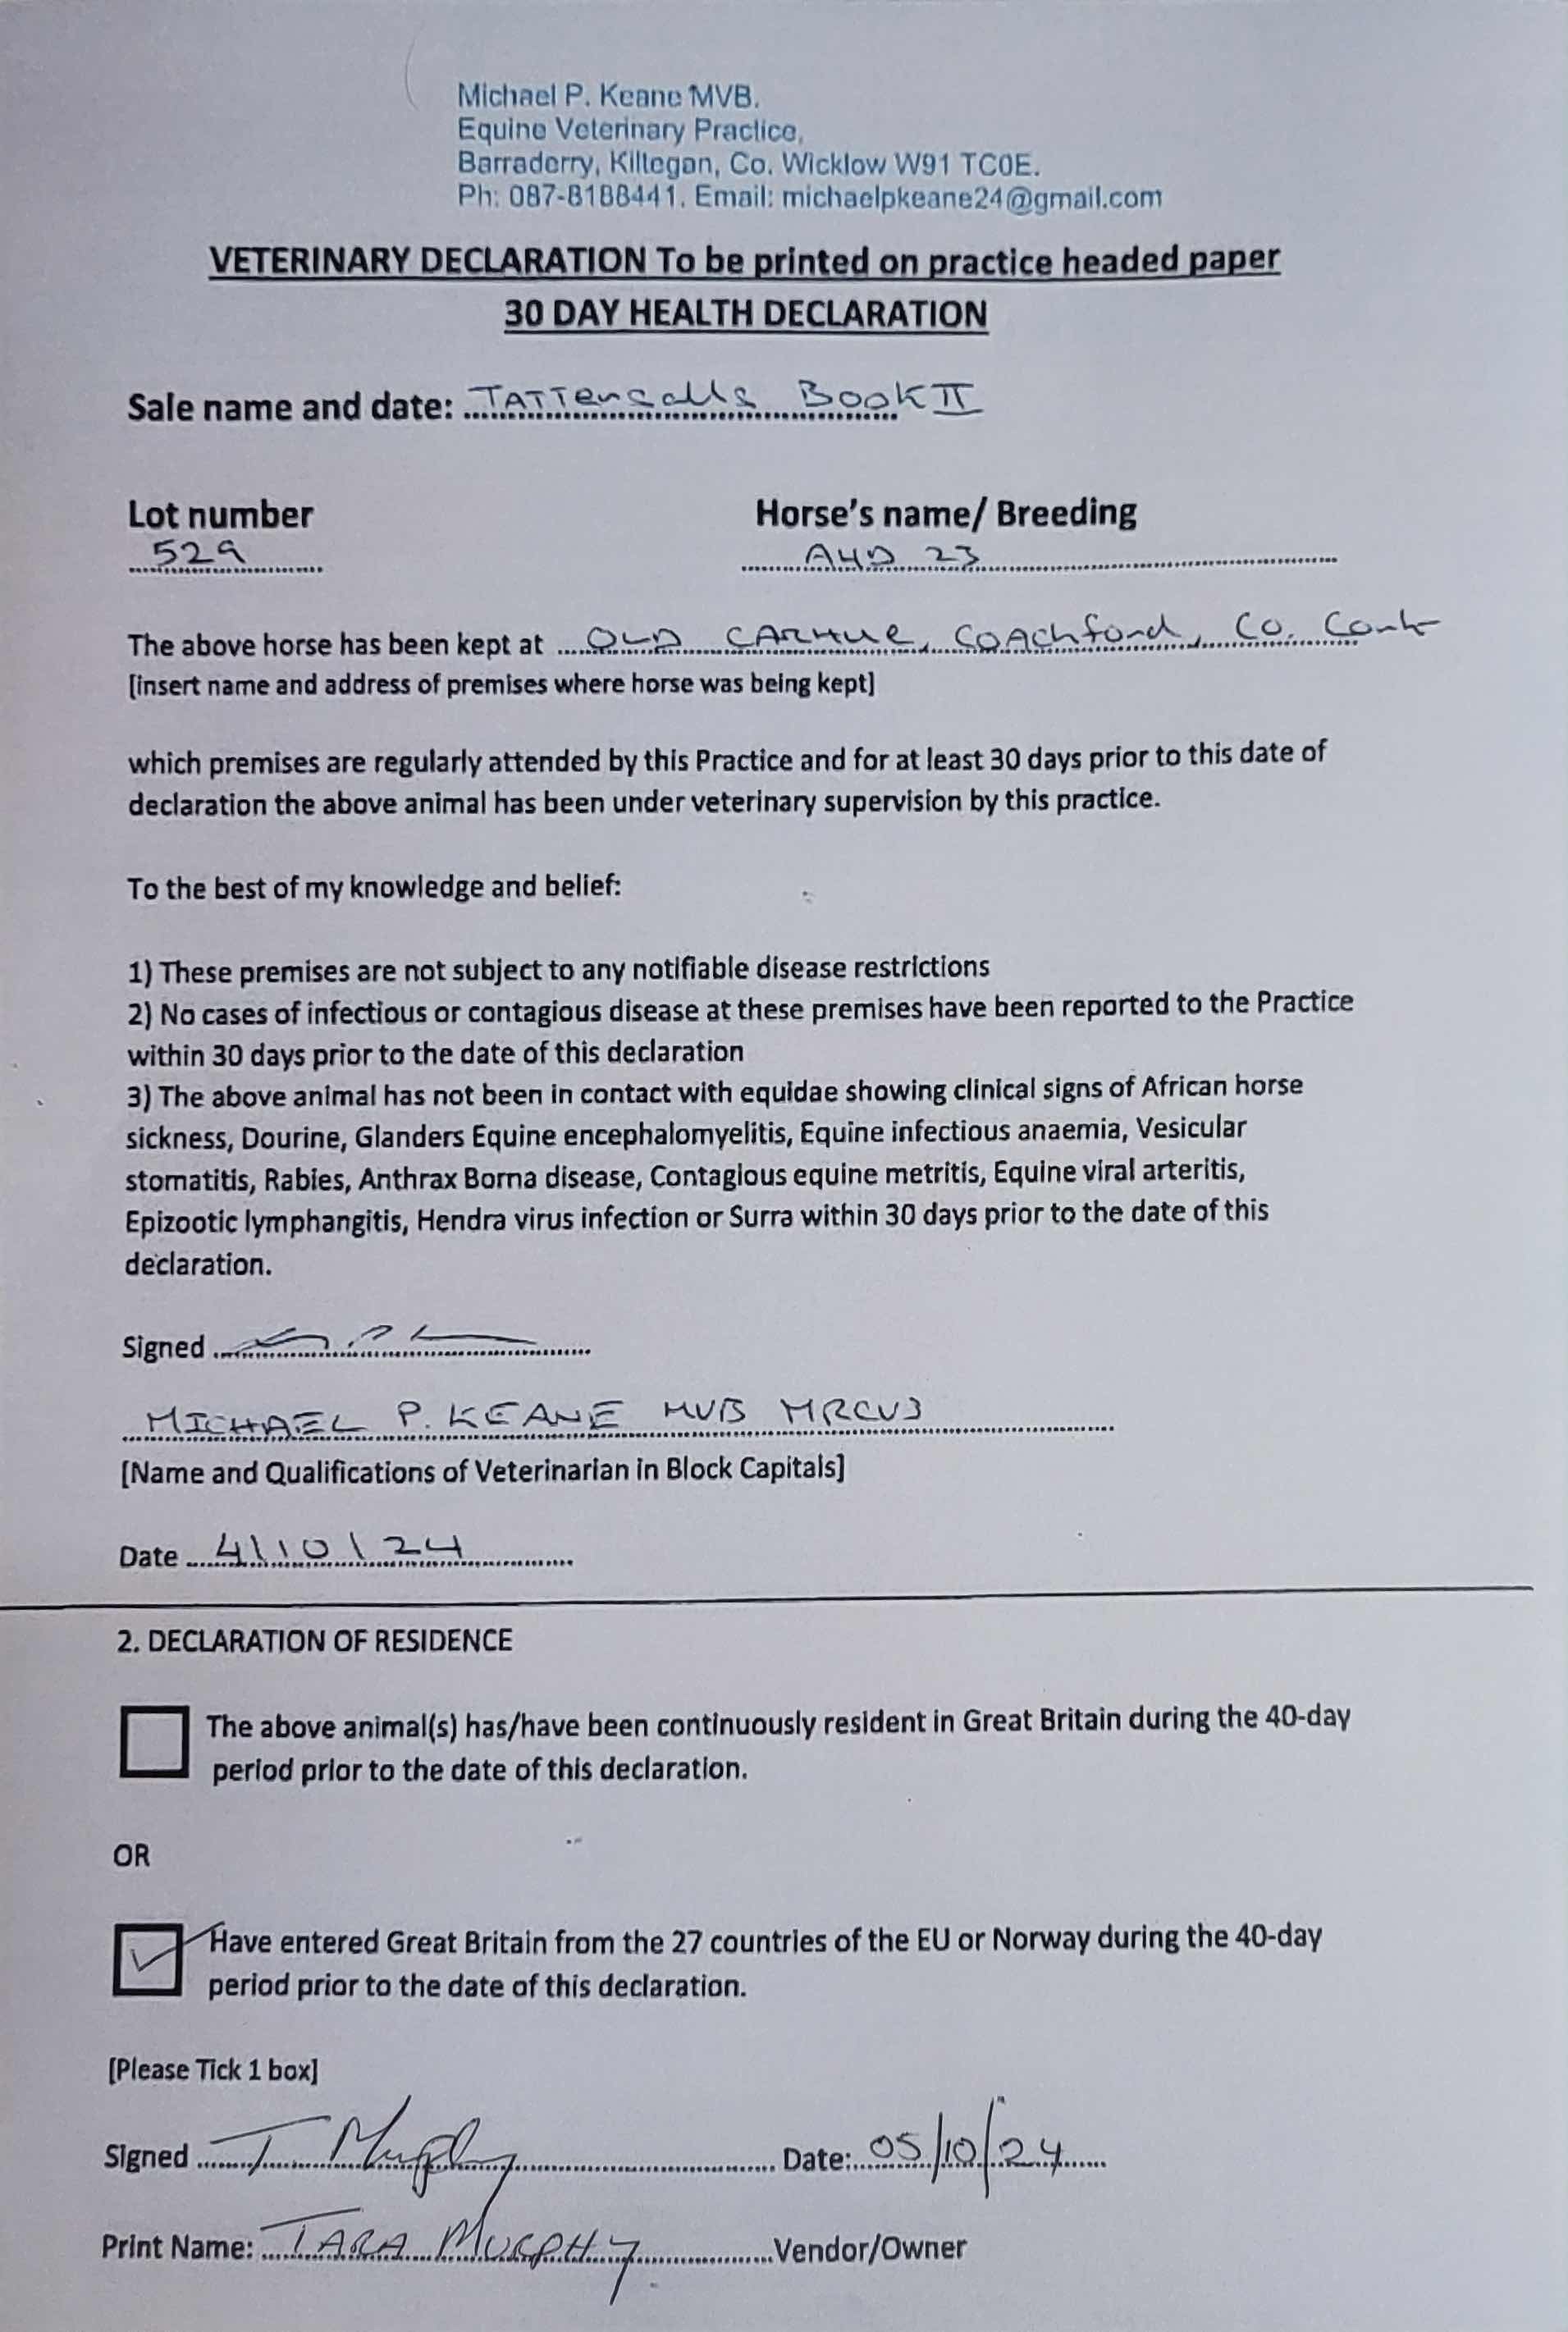 Michael P. Keane MVB.
Equine Veterinary Practice,
Barraderry, Killegan, Co. Wicklow W91 TC0E.
Ph: 087-8188441. Email: michaelpkeane24@gmail.com
VETERINARY DECLARATION To be printed on practice headed paper
30 DAY HEALTH DECLARATION
Sale name and date: TATTersalls Book II
Lot number Horse's name/ Breeding
529 AHD 23
The above horse has been kept at OLD CARHUE, COACHford, Co. Cork
[insert name and address of premises where horse was being kept]
which premises are regularly attended by this Practice and for at least 30 days prior to this date of
declaration the above animal has been under veterinary supervision by this practice.
To the best of my knowledge and belief:
1) These premises are not subject to any notifiable disease restrictions
2) No cases of infectious or contagious disease at these premises have been reported to the Practice
within 30 days prior to the date of this declaration
3) The above animal has not been in contact with equidae showing clinical signs of African horse
sickness, Dourine, Glanders Equine encephalomyelitis, Equine infectious anaemia, Vesicular
stomatitis, Rabies, Anthrax Borna disease, Contagious equine metritis, Equine viral arteritis,
Epizootic lymphangitis, Hendra virus infection or Surra within 30 days prior to the date of this
declaration.
Signed
MICHAEL P. KEANE MVB MRCVS
[Name and Qualifications of Veterinarian in Block Capitals]
Date 4\10\24
2. DECLARATION OF RESIDENCE
The above animal(s) has/have been continuously resident in Great Britain during the 40-day
period prior to the date of this declaration.
OR
Have entered Great Britain from the 27 countries of the EU or Norway during the 40-day
period prior to the date of this declaration.
[Please Tick 1 box]
Signed T Murphy Date: 05/10/24
Print Name: TARA MURPHY Vendor/Owner